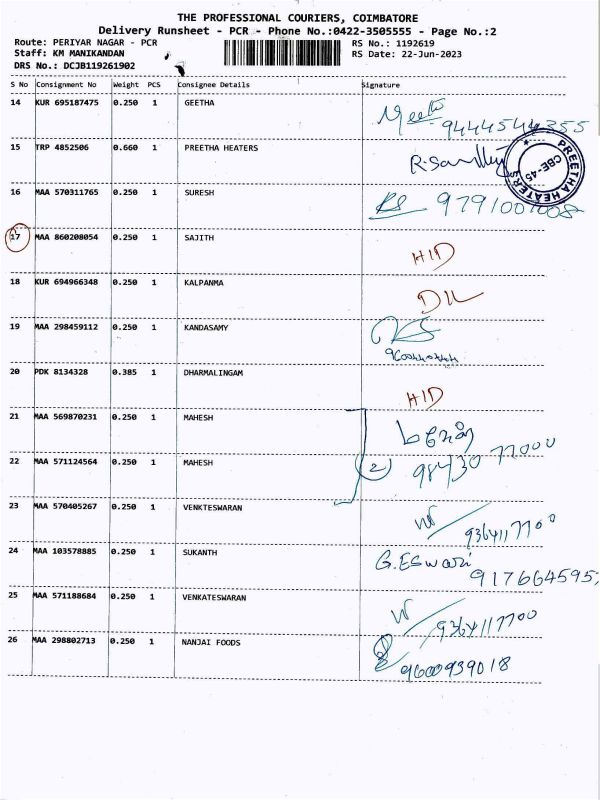 THE PROFESSIONAL COURIERS, COIMBATORE
Delivery Runsheet - PCR - Phone No.:0422-3505555 - Page No.:2
Route: PERIYAR NAGAR - PCR RS No.: 1192619
Staff: KM MANIKANDAN RS Date: 22-Jun-2023
DRS No.: DCJB119261902
S No Consignment No Weight PCS Consignee Details Signature
14 KUR 695187475 0.250 1 GEETHA
15 TRP 4852506 0.660 1 PREETHA HEATERS
PREETHA HEATERS CBE-45
16 MAA 570311765 0.250 1 SURESH
9791001008
17 MAA 860208054 0.250 1 SAJITH
HID
18 KUR 694966348 0.250 1 KALPANMA
DIL
19 MAA 298459112 0.250 1 KANDASAMY
20 PDK 8134328 0.385 1 DHARMALINGAM
HID
21 MAA 569870231 0.250 1 MAHESH
22 MAA 571124564 0.250 1 MAHESH
2 98430 77000
23 MAA 570405267 0.250 1 VENKTESWARAN
9364117700
24 MAA 103578885 0.250 1 SUKANTH
G.Eswari
917664595
25 MAA 571188684 0.250 1 VENKATESWARAN
9364117700
26 MAA 298802713 0.250 1 NANJAI FOODS
9600939018